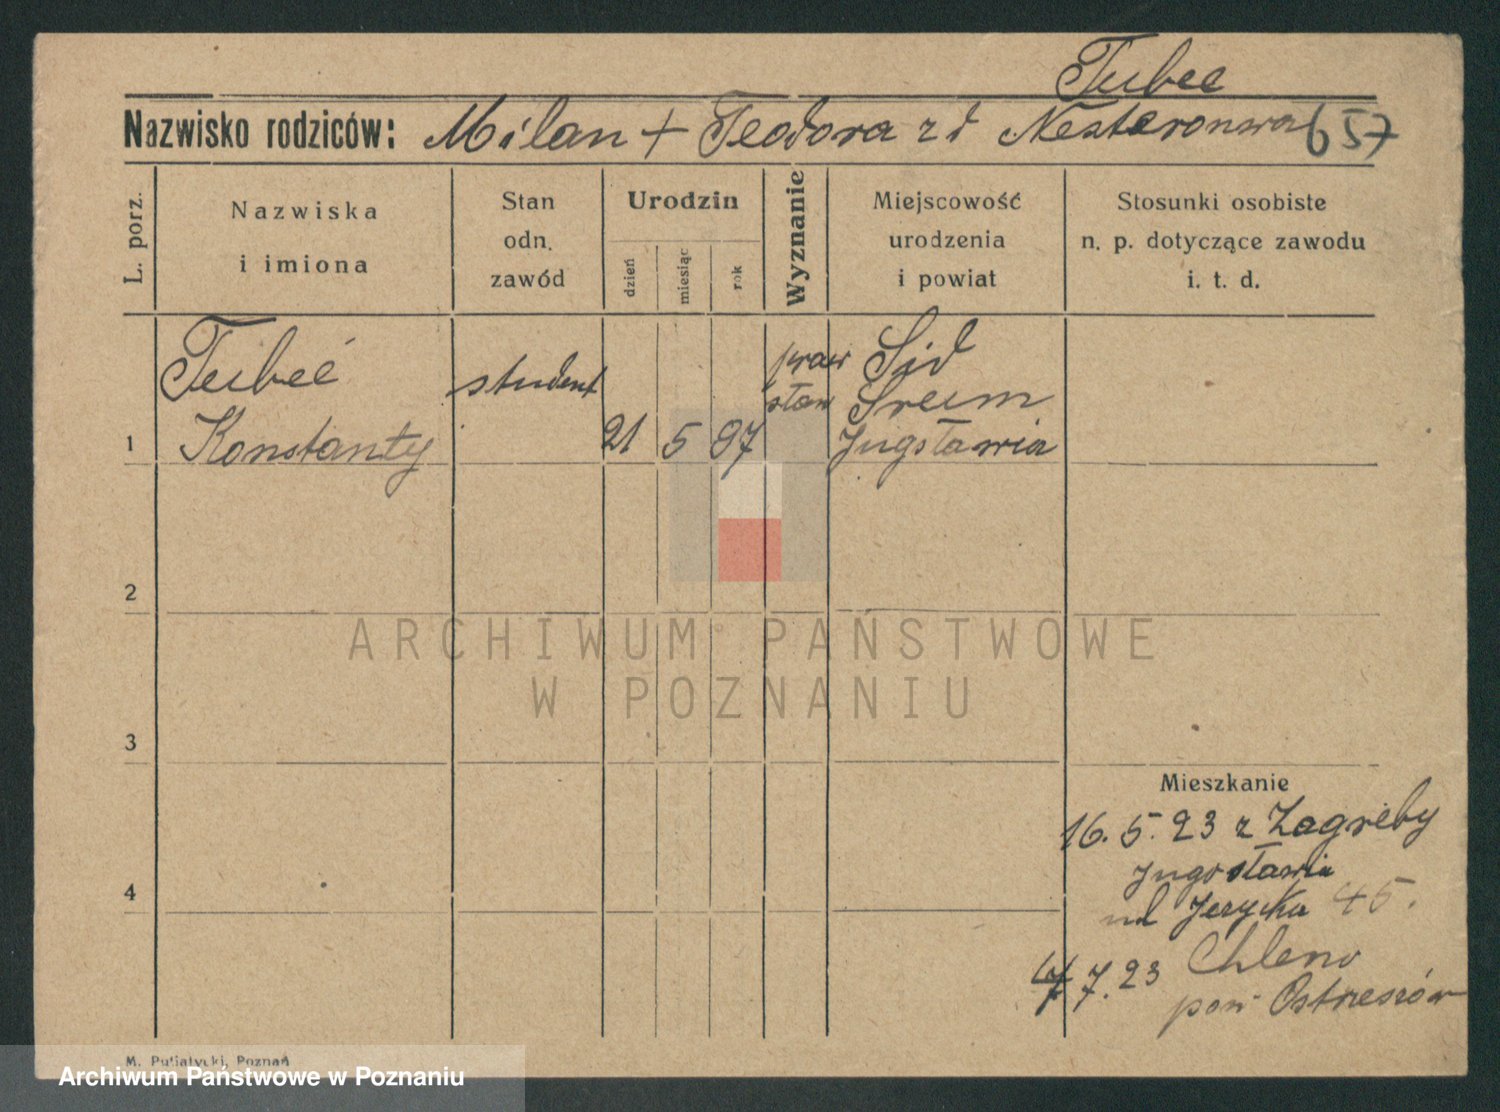 Tubec
Nazwisko rodziców: Milan + Teodora z d Nesteronwa 657
L. porz.
Nazwiska
i imiona
Stan
odn.
zawód
Urodzin
dzień
miesiąc
rok
Wyznanie
Miejscowość
urodzenia
i powiat
Stosunki osobiste
n. p. dotyczące zawodu
i. t. d.
1
Tubeć
Konstanty
student
21 5 97
praw
sław
Sid
Sreim
Jugsławia
2
3
4
Mieszkanie
16. 5. 23 z Zagreby
Jugosławia
ul Jeżycka 45.
7. 23 Chleno
pow Ostrzeszów
M. Putiatycki, Poznań
ARCHIWUM PAŃSTWOWE
W POZNANIU
Archiwum Państwowe w Poznaniu